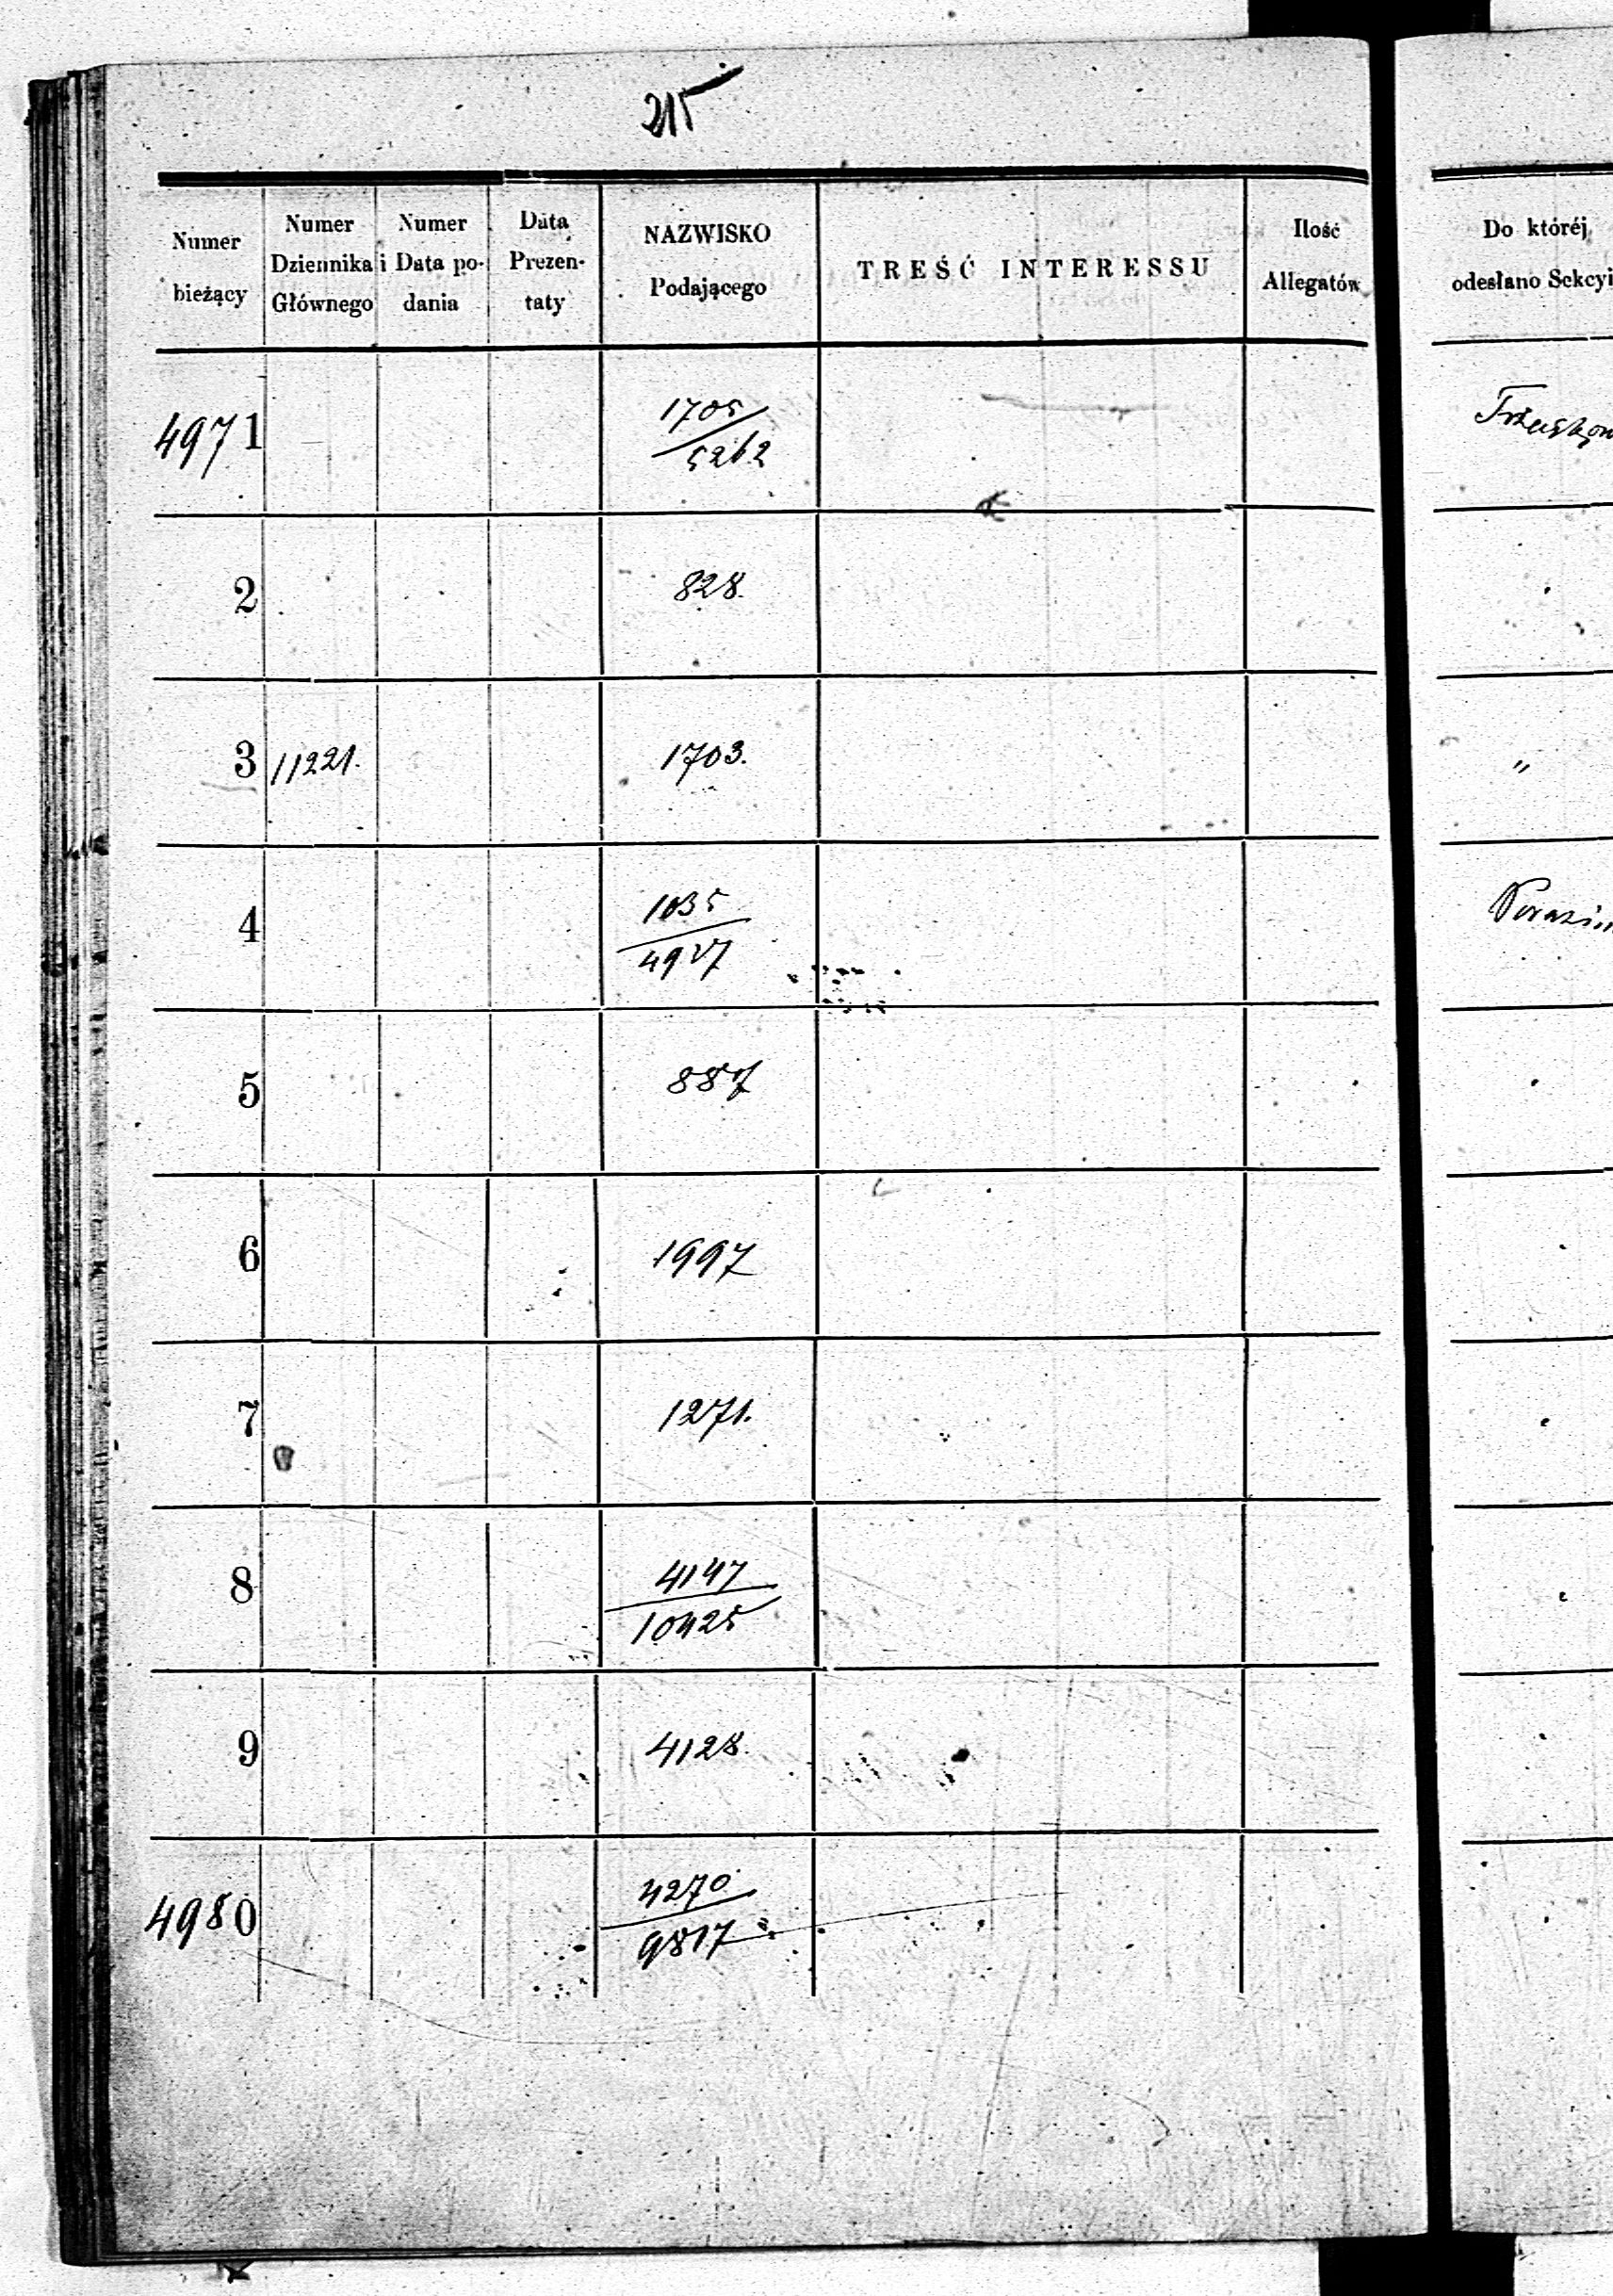 215
Numer bieżący
Numer Dziennika Głównego
Numer i Data podania
Data Prezentaty
NAZWISKO Podającego
TREŚĆ INTERESSU
Ilość Allegatów
Do któréj odesłano Sekcyi
4971 1705
5262
2 828.
3 11221. 1703.
"
4 1035
4927
5 887
6 1997
7 1271.
8 4147
10425
9 4128.
4980 4270
9817